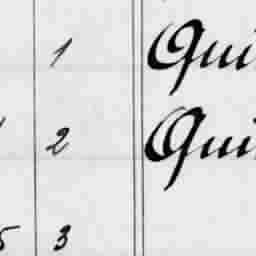 1 Qui
2 Qui
5 3